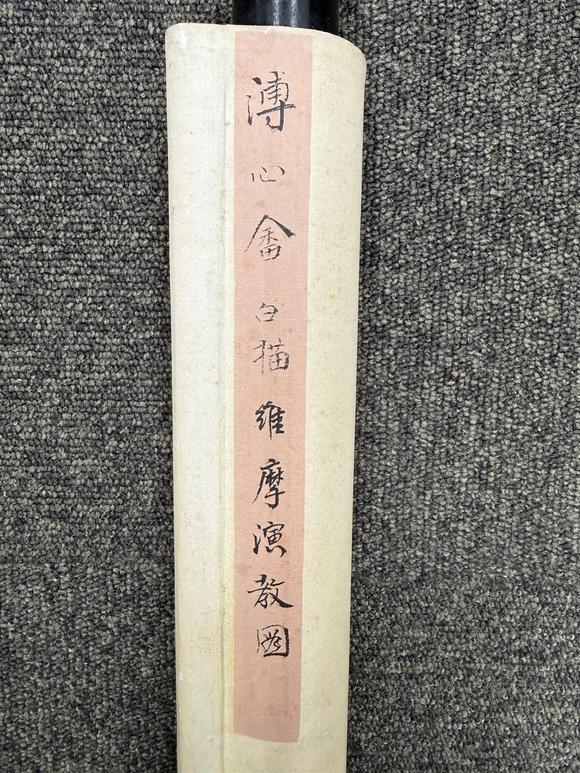 溥心畬白描維摩演教圖